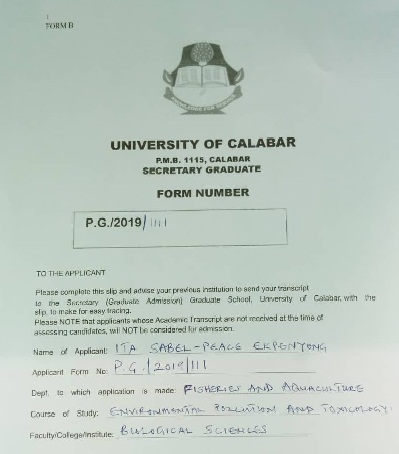 FORM B
UNIVERSITY OF CALABAR
P.M.B. 1115, CALABAR
SECRETARY GRADUATE
FORM NUMBER
P.G./2019/1111
TO THE APPLICANT
Please complete this slip and advise your previous institution to send your transcript
to the Secretary (Graduate Admission) Graduate School, University of Calabar, with the
slip, to make for easy tracing.
Please NOTE that applicants whose Academic Transcript are not received at the time of
assessing candidates, will NOT be considered for admission.
Name of Applicant: ITA SABEL-PEACE EKPENYONG
Applicant Form No: P.G./2019/111
Dept. to which application is made: FISHERIES AND AQUACULTURE
Course of Study: ENVIRONMENTAL POLLUTION AND TOXICOLOGY
Faculty/College/Institute: BIOLOGICAL SCIENCES